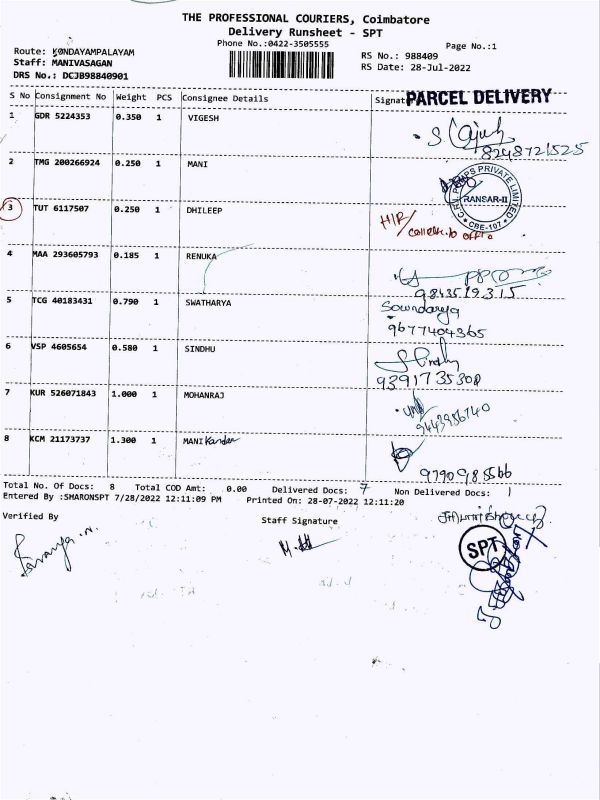 THE PROFESSIONAL COURIERS, Coimbatore
Delivery Runsheet - SPT
Phone No.:0422-3505555
Page No.:1
Route: KONDAYAMPALAYAM
Staff: MANIVASAGAN
DRS No.: DCJB98840901
RS No.: 988409
RS Date: 28-Jul-2022
PARCEL DELIVERY
S No Consignment No Weight PCS Consignee Details
1 GDR 5224353 0.350 1 VIGESH
8248721525
2 TMG 200266924 0.250 1 MANI
PRIVATE LIMITED
RANSAR-II
CBE-107
3 TUT 6117507 0.250 1 DHILEEP
4 MAA 293605793 0.185 1 RENUKA
9843519315
5 TCG 40183431 0.790 1 SWATHARYA
Soundarya
9677404365
6 VSP 4605654 0.580 1 SINDHU
7 KUR 526071843 1.000 1 MOHANRAJ
8 KCM 21173737 1.300 1 MANI
Total No. Of Docs: 8 Total COD Amt: 0.00 Delivered Docs: 7 Non Delivered Docs: 1
Entered By :SHARONSPT 7/28/2022 12:11:09 PM Printed On: 28-07-2022 12:11:20
Verified By
Staff Signature
SPT